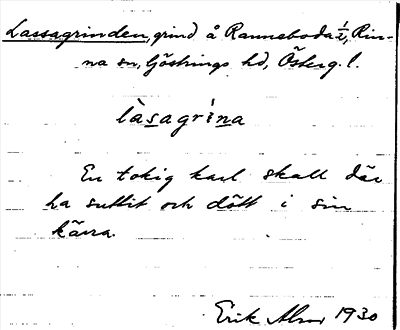 Lassagrinden, grind å Ranneboda 1/2, Rin-
na sn, Göstrings hd, Österg. l.
làsagrìna
En tokig karl skall där
ha suttit och dött i sin
kärra.
Erik 1930